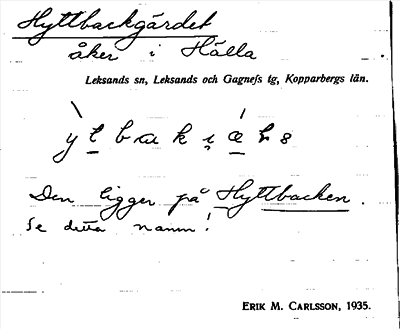 Hyttbackgärdet
åker i Hälla
Leksands sn, Leksands och Gagnefs tg, Kopparbergs län.
Den ligger på Hyttbacken.
Se detta namn!
ERIK M. CARLSSON, 1935.